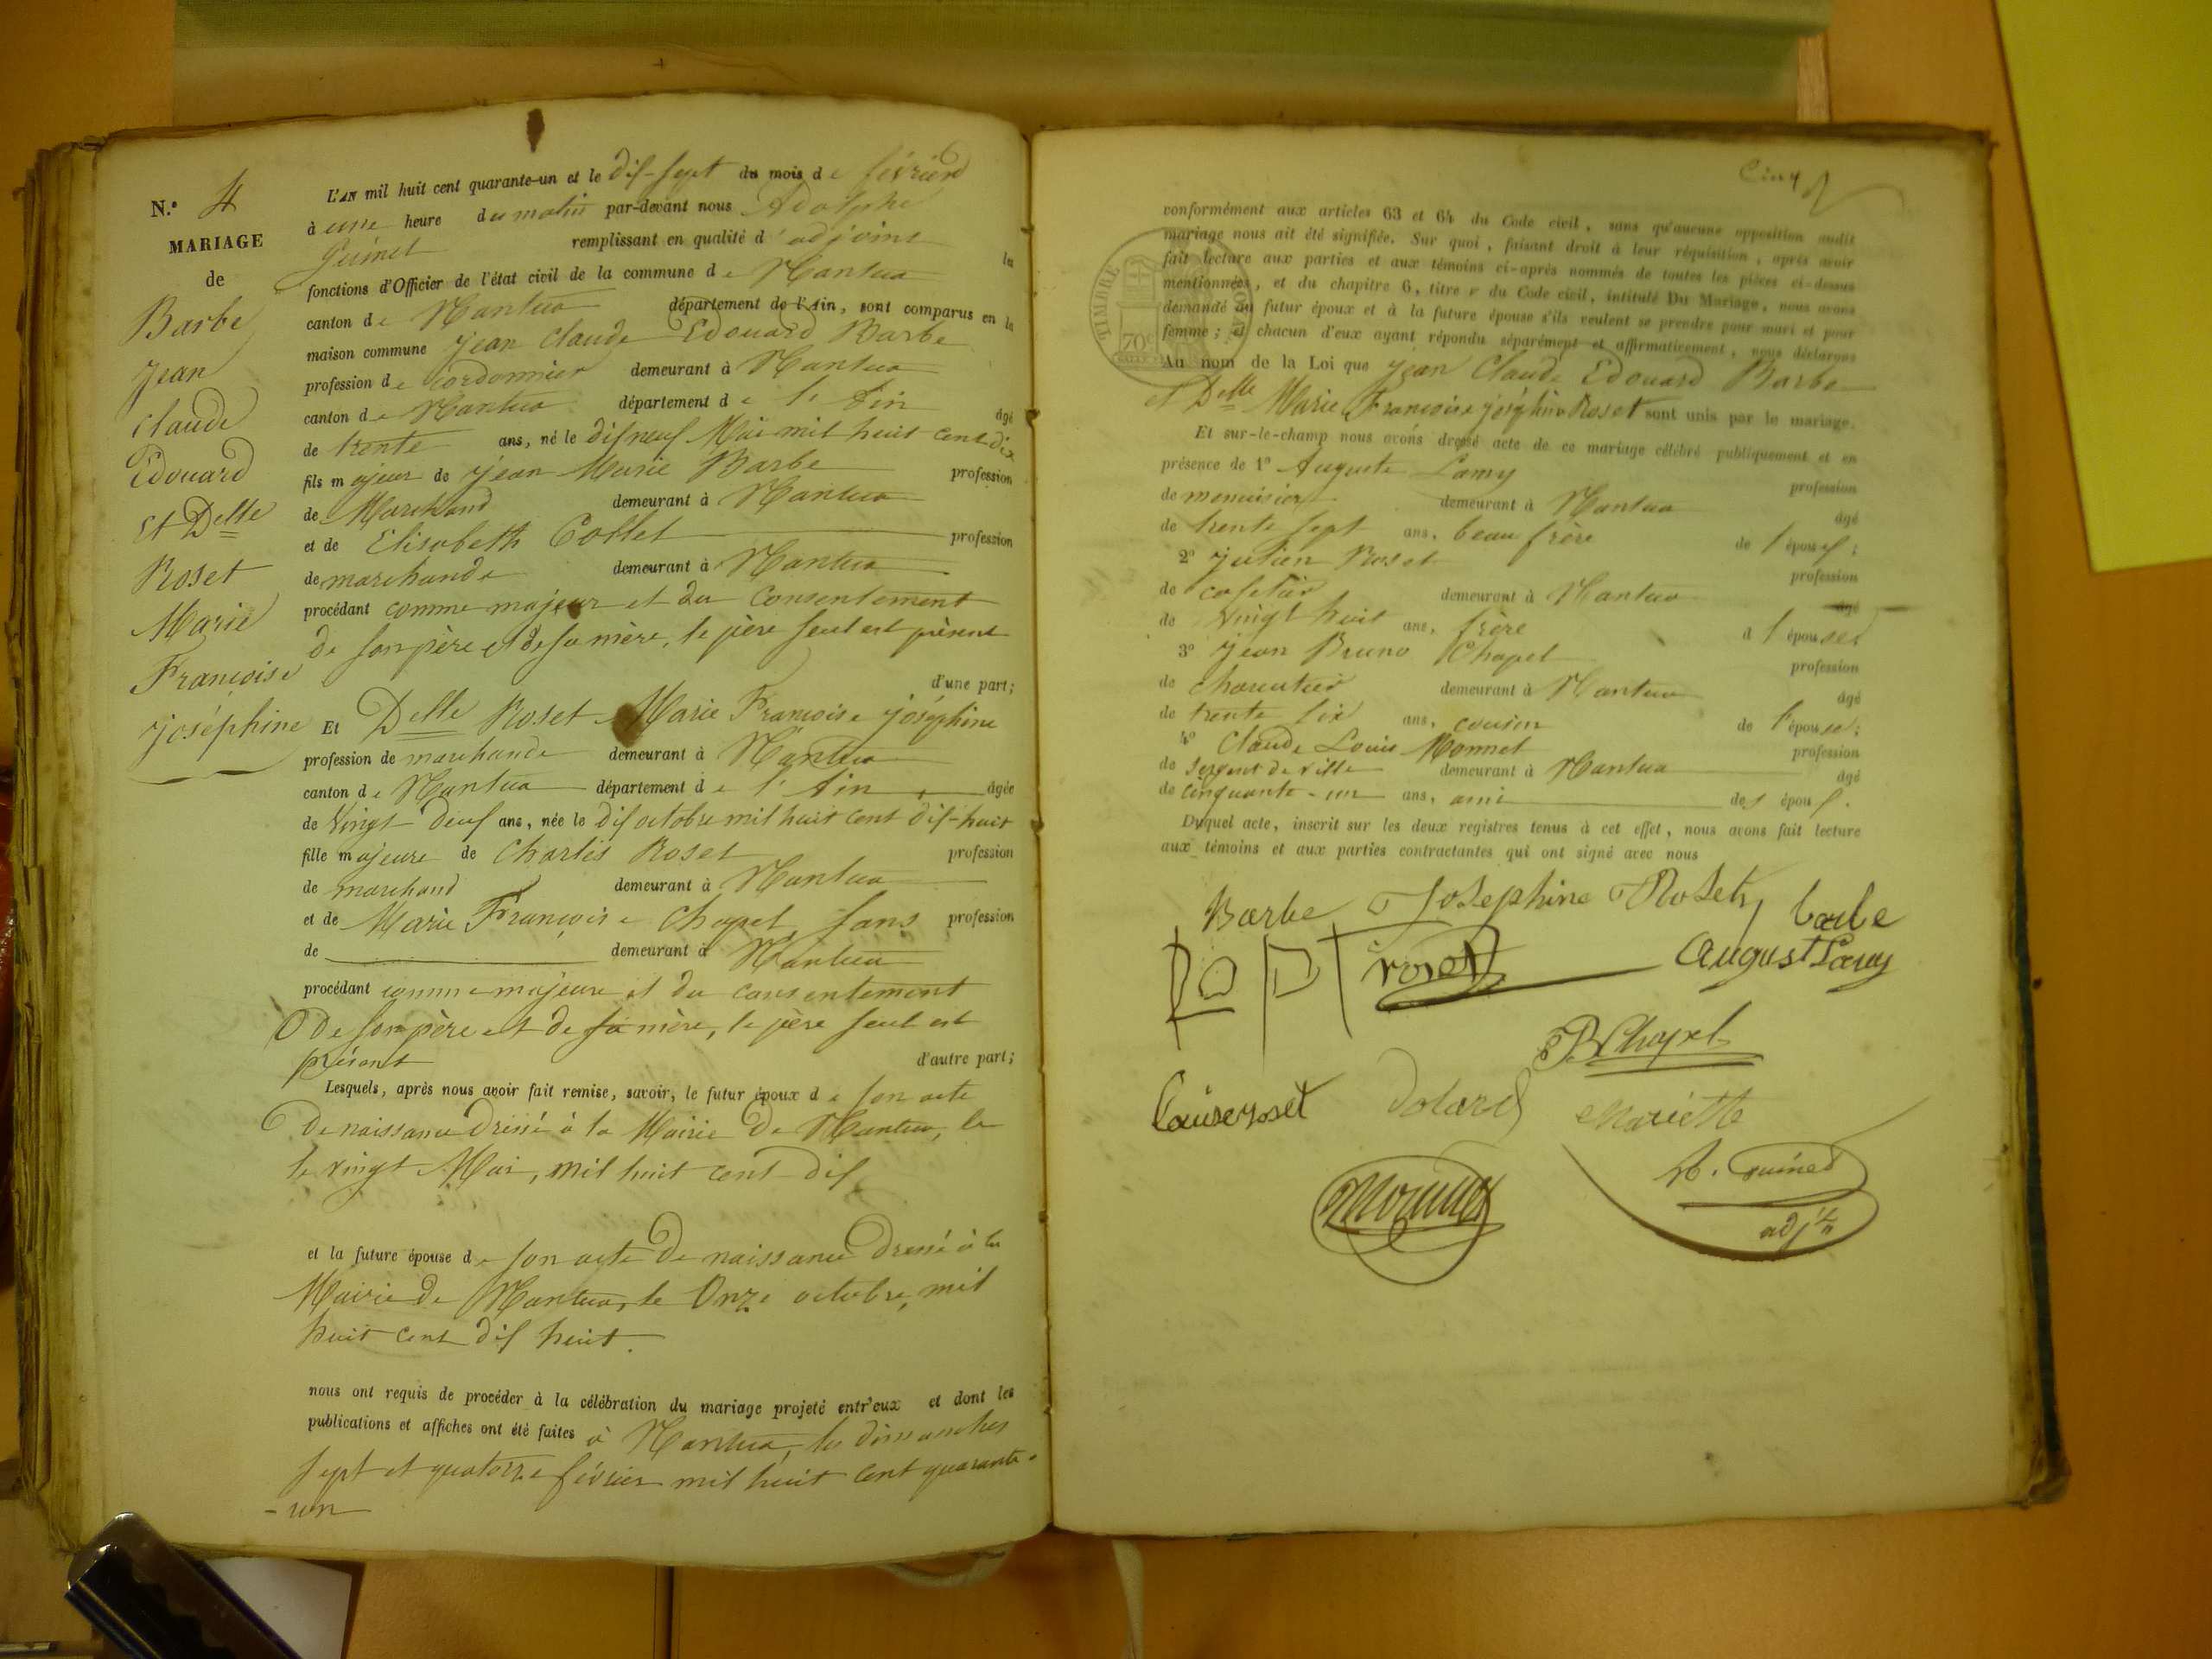 N.° 4
MARIAGE
de
Barbe
Jean
Claude
Edouard
Et Delle
Roset
Marie
Francoise
joséphine
L'AN mil huit cent quarante-un et le dix-sept du mois de février
à une heure du matin par-devant nous Adolphe
Guinet remplissant en qualité d'adjoint les
fonctions d'Officier de l'état civil de la commune de Nantua
canton de Nantua département de l'Ain, sont comparus en la
maison commune jean Claude Edouard Barbe
profession de cordonnier demeurant à Nantua
canton de Nantua département de l'Ain âgé
de trente ans, né le dix neuf Mai mil huit cent dix
fils majeur de jean Marie Barbe profession
de Marchand demeurant à Nantua
et de Elisabeth Collet profession
de marchande demeurant à Nantua
procédant comme majeur et du Consentement
de son père et de sa mère, le père seul est présent
d'une part;
Et Delle Roset Marie Francoise joséphine
profession de marchande demeurant à Nantua
canton de Nantua département de l'Ain âgée
de Vingt deux ans, née le dix octobre mil huit cent dix-huit
fille majeure de Charles Roset profession
de marchand demeurant à Nantua
et de Marie Françoise Chapel, sans profession
de demeurant à Nantua
procédant comme majeure et du consentement
de son père et de sa mère, le père seul est
présent d'autre part;
Lesquels, après nous avoir fait remise, savoir, le futur époux de son acte
de naissance dréssé à la Mairie de Nantua, le
le vingt Mai, mil huit cent dix
et la future épouse de son acte de naissance dressé à la
Mairie de Nantua, le Onze octobre, mil
huit cent dix huit.
nous ont requis de procéder à la célébration du mariage projeté entr'eux et dont les
publications et affiches ont été faites à Nantua, les dimanches
sept et quatorze février mil huit cent quarante-
-un
Cinq
conformément aux articles 63 et 64 du Code civil, sans qu'aucune opposition audit
mariage nous ait été signifiée. Sur quoi, faisant droit à leur réquisition, après avoir
fait lecture aux parties et aux témoins ci-après nommés de toutes les pièces ci-dessus
mentionnées, et du chapitre 6, titre v du Code civil, intitulé Du Mariage, nous avons
demandé au futur époux et à la future épouse s'ils veulent se prendre pour mari et pour
femme; et chacun d'eux ayant répondu séparément et affirmativement, nous déclarons
TIMBRE ROYAL
70c
Au nom de la Loi que jean Claude Edouard Barbe
et Delle Marie Francoise joséphine Roset sont unis par le mariage.
Et sur-le-champ nous avons dressé acte de ce mariage célébré publiquement et en
présence de 1° Auguste Lamy profession
de menuisier demeurant à Nantua âgé
de trente sept ans, beau frère de l'époux;
2° julien Roset profession
de cafetier demeurant à Nantua âgé
de Vingt huit ans, frère d l'épouse;
3° jean Bruno Chapel profession
de charcutier demeurant à Nantua âgé
de trente six ans, cousin de l'épouse;
4° Claude Louis Monnet profession
de sergent de ville demeurant à Nantua âgé
de cinquante-un ans, ami des époux.
Duquel acte, inscrit sur les deux registres tenus à cet effet, nous avons fait lecture
aux témoins et aux parties contractantes qui ont signé avec nous
Barbe Josephine Roset barbe
roset August Lamy
B Chapel
Louise roset Dolard Mariette
Monnet A. Guinet
adjt